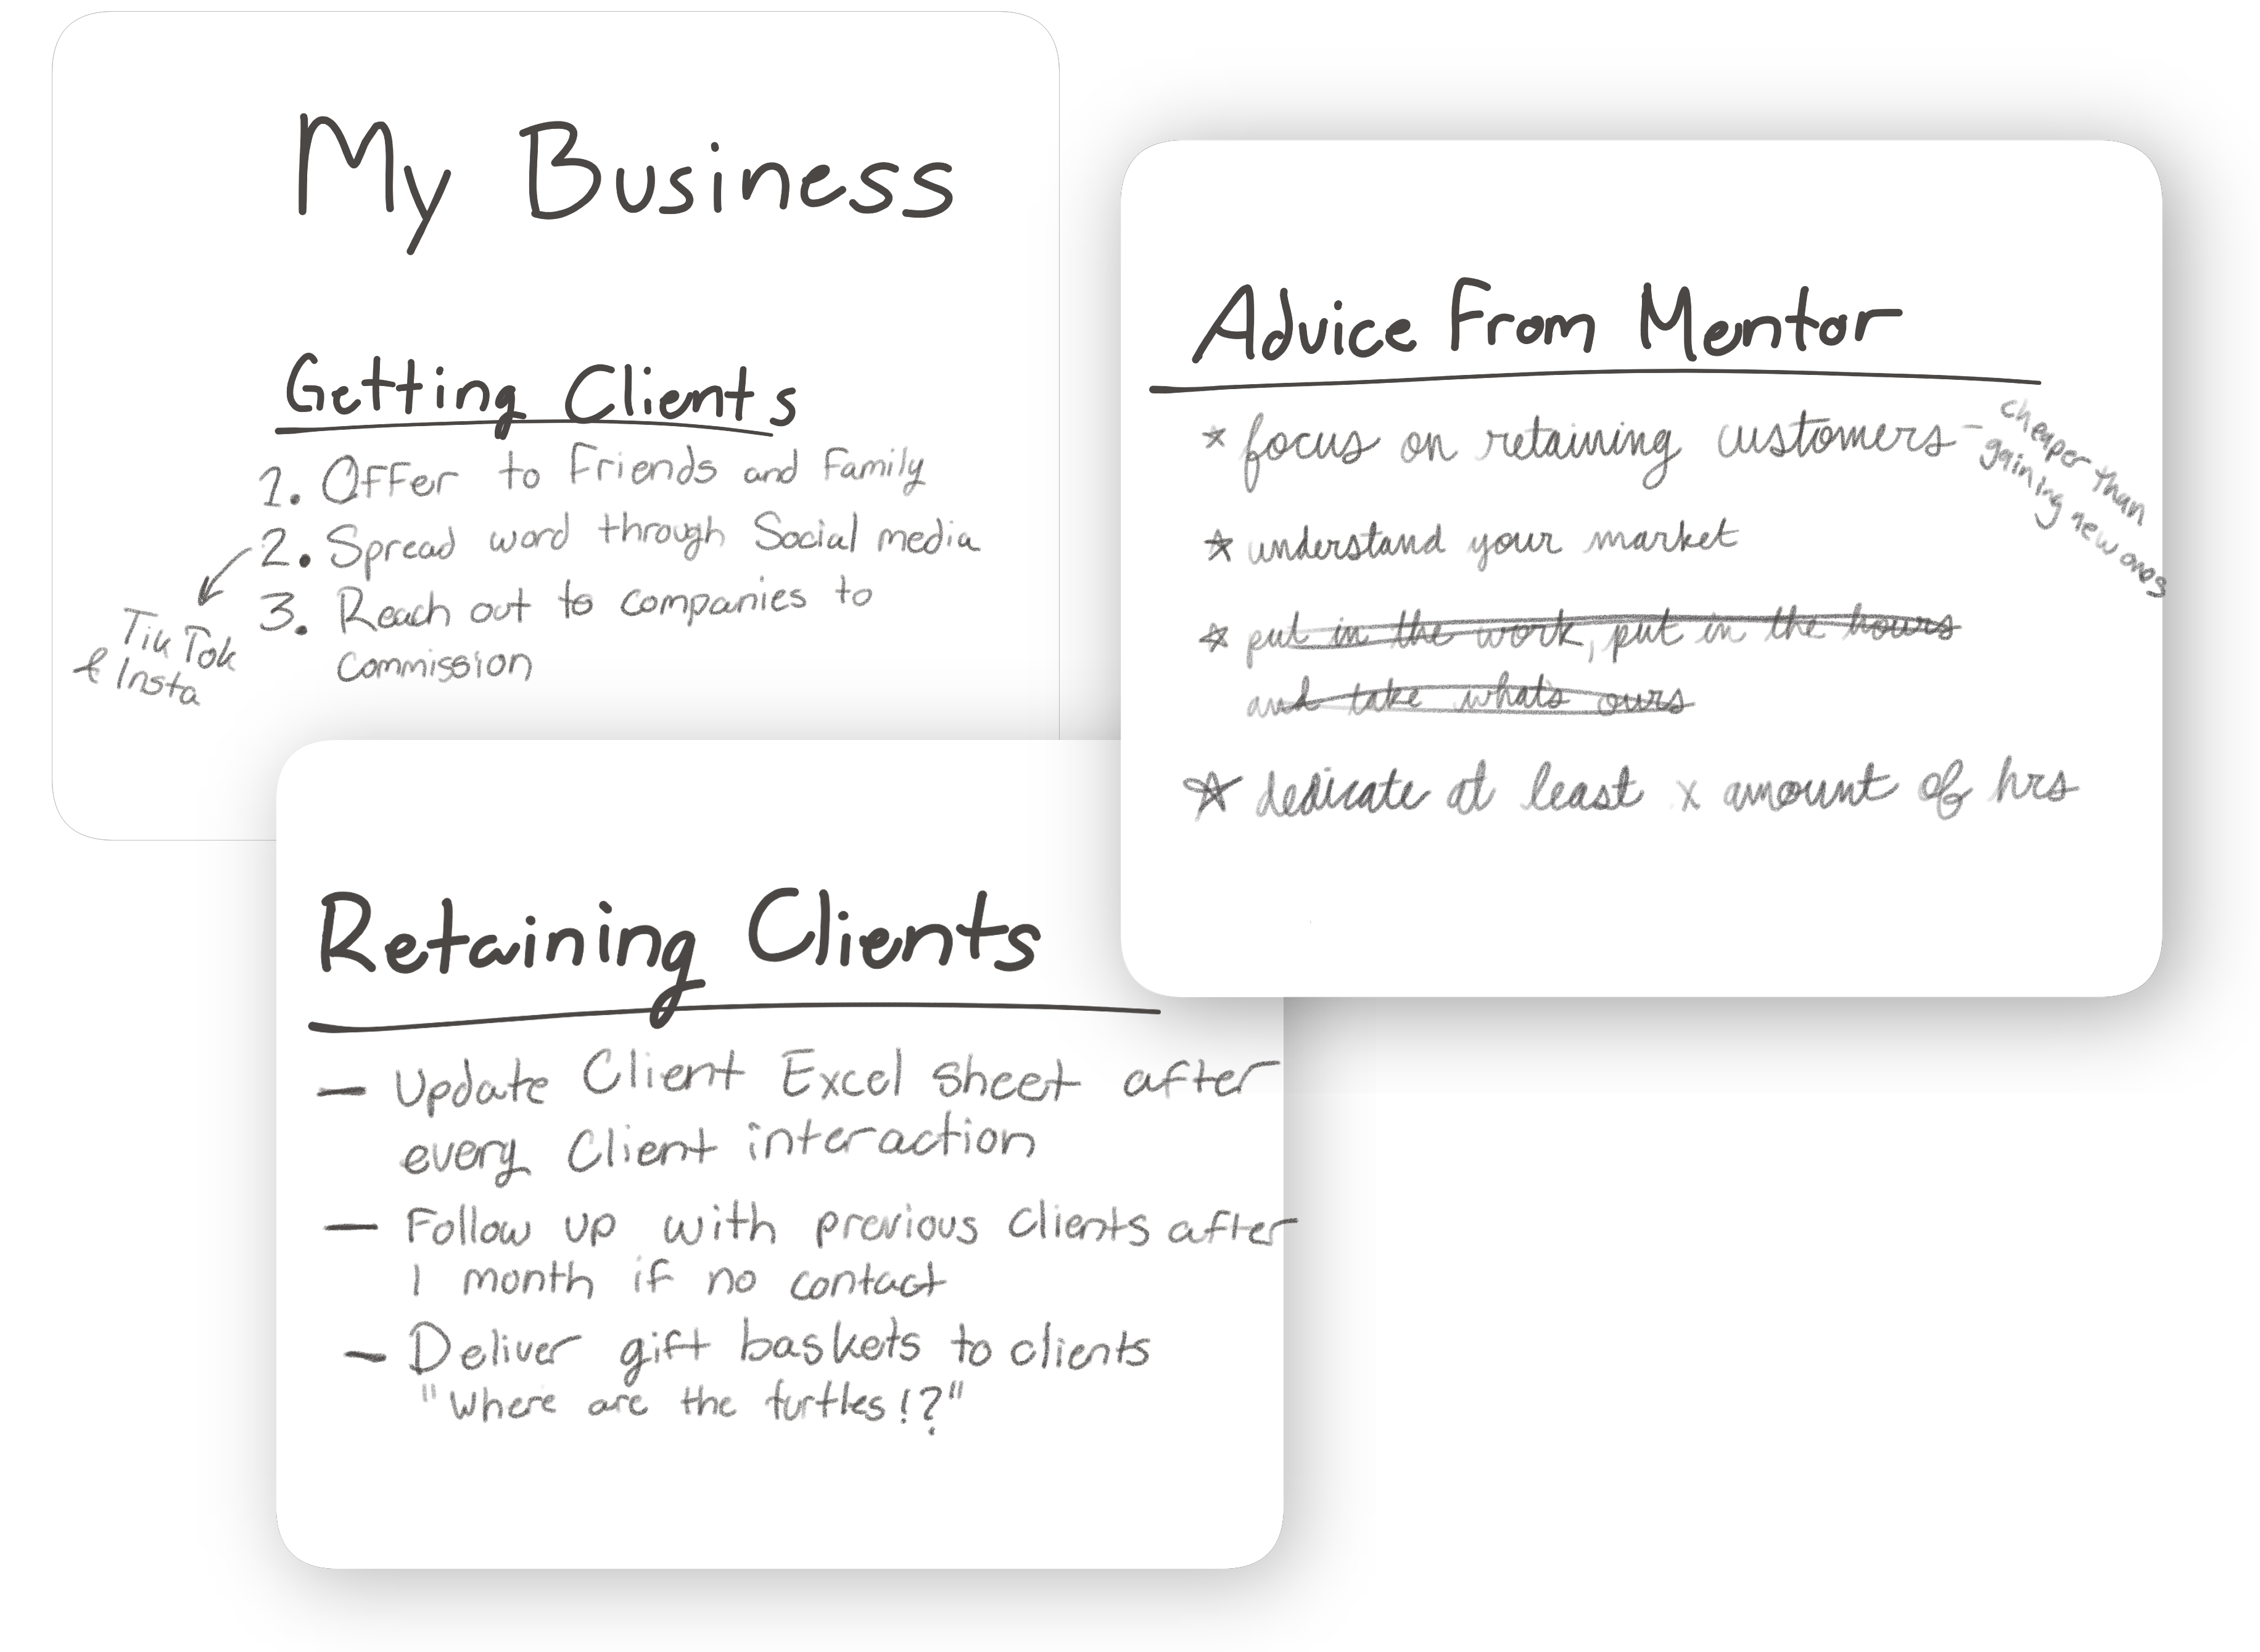 My Business
Getting Clients
1. Offer to Friends and Family
2. Spread word through Social media
Tik Tok
& Insta
3. Reach out to companies to
Commission
Advice From Mentor
* focus on retaining customers - cheaper than
gaining new ones
* understand your market
* put in the work, put in the hours
and take what's ours
* dedicate at least x amount of hrs
Retaining Clients
— Update Client Excel sheet after
every Client interaction
— Follow up with previous clients after
1 month if no contact
— Deliver gift baskets to clients
"Where are the turtles!?"